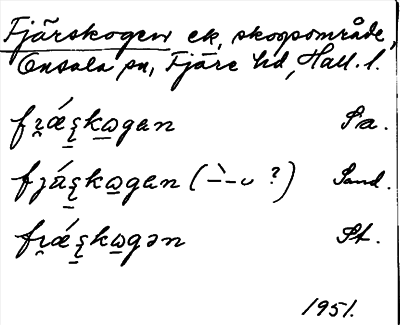 Fjärskogen ek, skogsområde,
Onsala sn, Fjäre hd, Hall. l.
fɪ̯ǽʂkωgen Sa.
fjáʂkωgen (–̀–∪ ?) Sand.
fɪ̯ǽʂkωgən St.
1951.